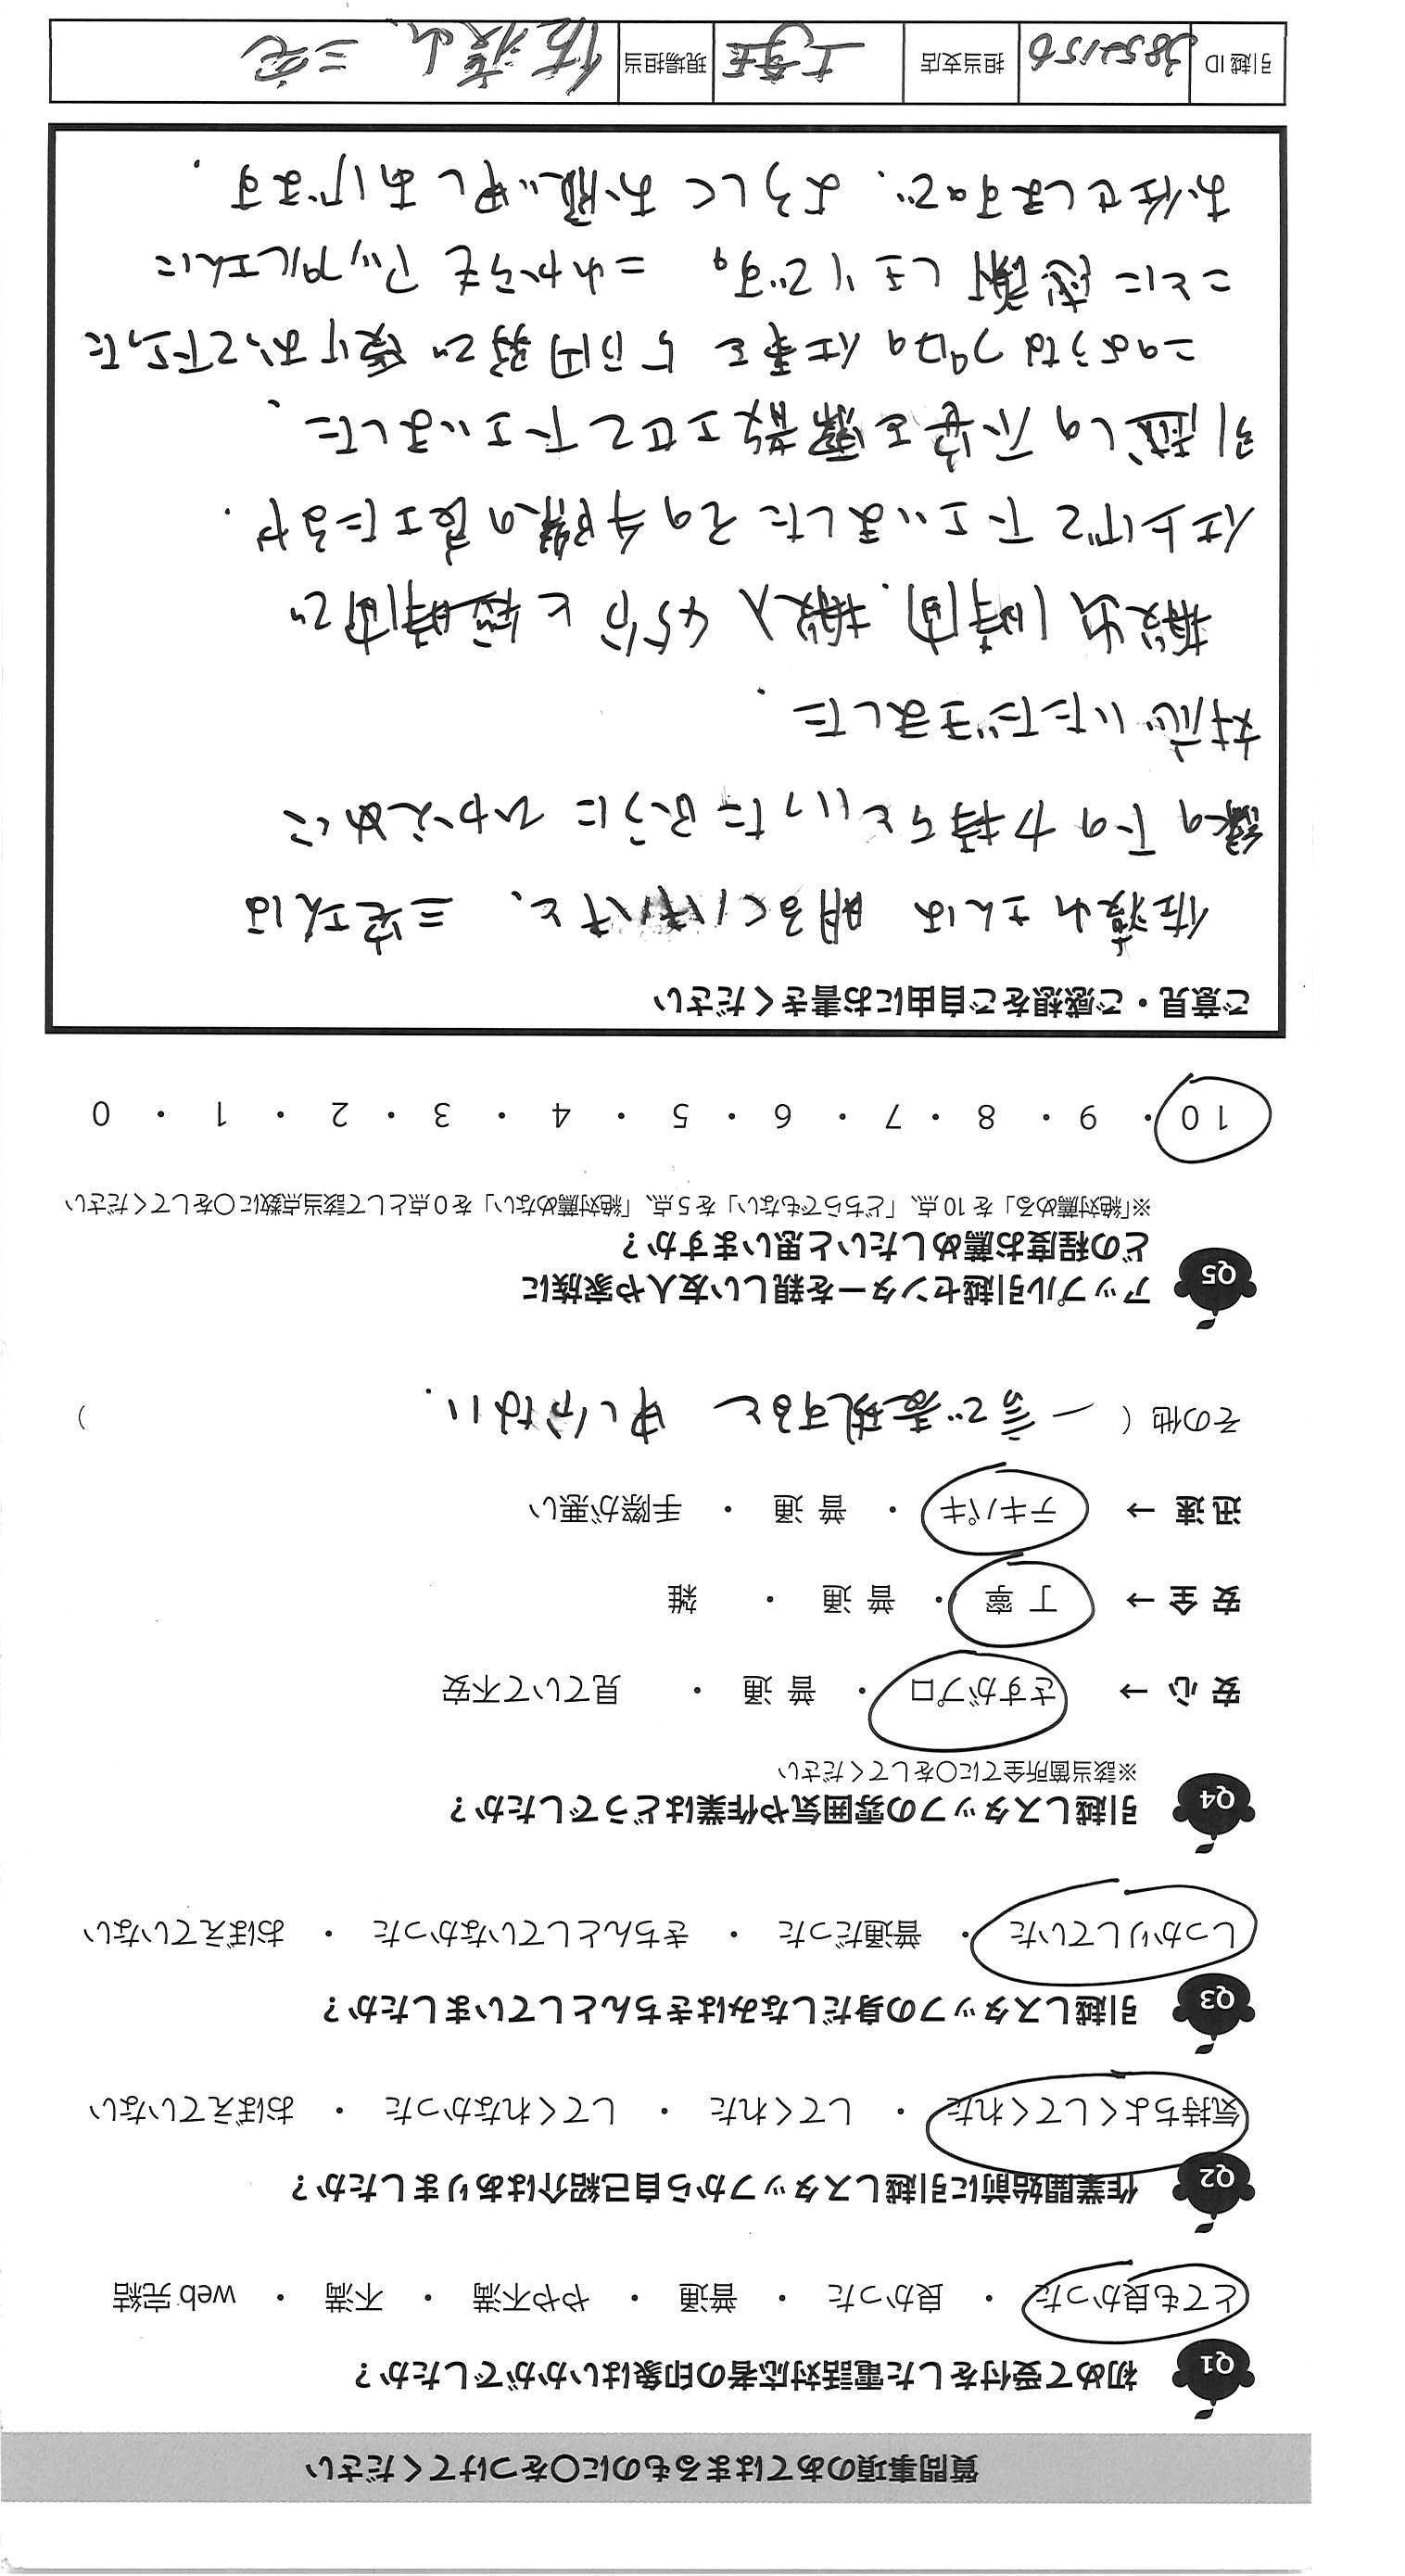 質問事項のあてはまるものに〇をつけてください
Q1 初めて受付をした電話対応者の印象はいかがでしたか？
とても良かった ・ 良かった ・ 普通 ・ やや不満 ・ 不満 ・ web 完結
Q2 作業開始前に引越しスタッフから自己紹介はありましたか？
気持ちよくしてくれた ・ してくれた ・ してくれなかった ・ おぼえていない
Q3 引越しスタッフの身だしなみはきちんとしていましたか？
しっかりしていた ・ 普通だった ・ きちんとしていなかった ・ おぼえていない
Q4 引越しスタッフの雰囲気や作業はどうでしたか？
※該当箇所全てに〇をしてください
安 心 → さすがプロ ・ 普 通 ・ 見ていて不安
安 全 → 丁 寧 ・ 普 通 ・ 雑
迅 速 → テキパキ ・ 普 通 ・ 手際が悪い
その他（ 一言で表現すると 申し分ない. ）
Q5 アップル引越センターを親しい友人や家族に
どの程度お薦めしたいと思いますか？
※「絶対薦める」を 10 点、「どちらでもない」を 5 点、「絶対薦めない」を 0 点として該当点数に〇をしてください
10 ・ 9 ・ 8 ・ 7 ・ 6 ・ 5 ・ 4 ・ 3 ・ 2 ・ 1 ・ 0
ご意見・ご感想をご自由にお書きください
佐渡山さんは 明るくハキハキと、三宅さんは
縁の下の力持ちといったふうに ひかえめに
対応いただきました.
搬出1時間. 搬入45分と短時間で
仕上げて下さいました その手際の良さたるや.
引越しの不安を霧散させて下さいました.
このようなプロの仕事を 5万円弱で 受けおって下さった
ことに感謝しきりです。 これからも アップルさんに
お任せしますので、よろしくお願い申しあげます.
引越 ID 3852156 担当支店 現場担当 佐渡山、三宅